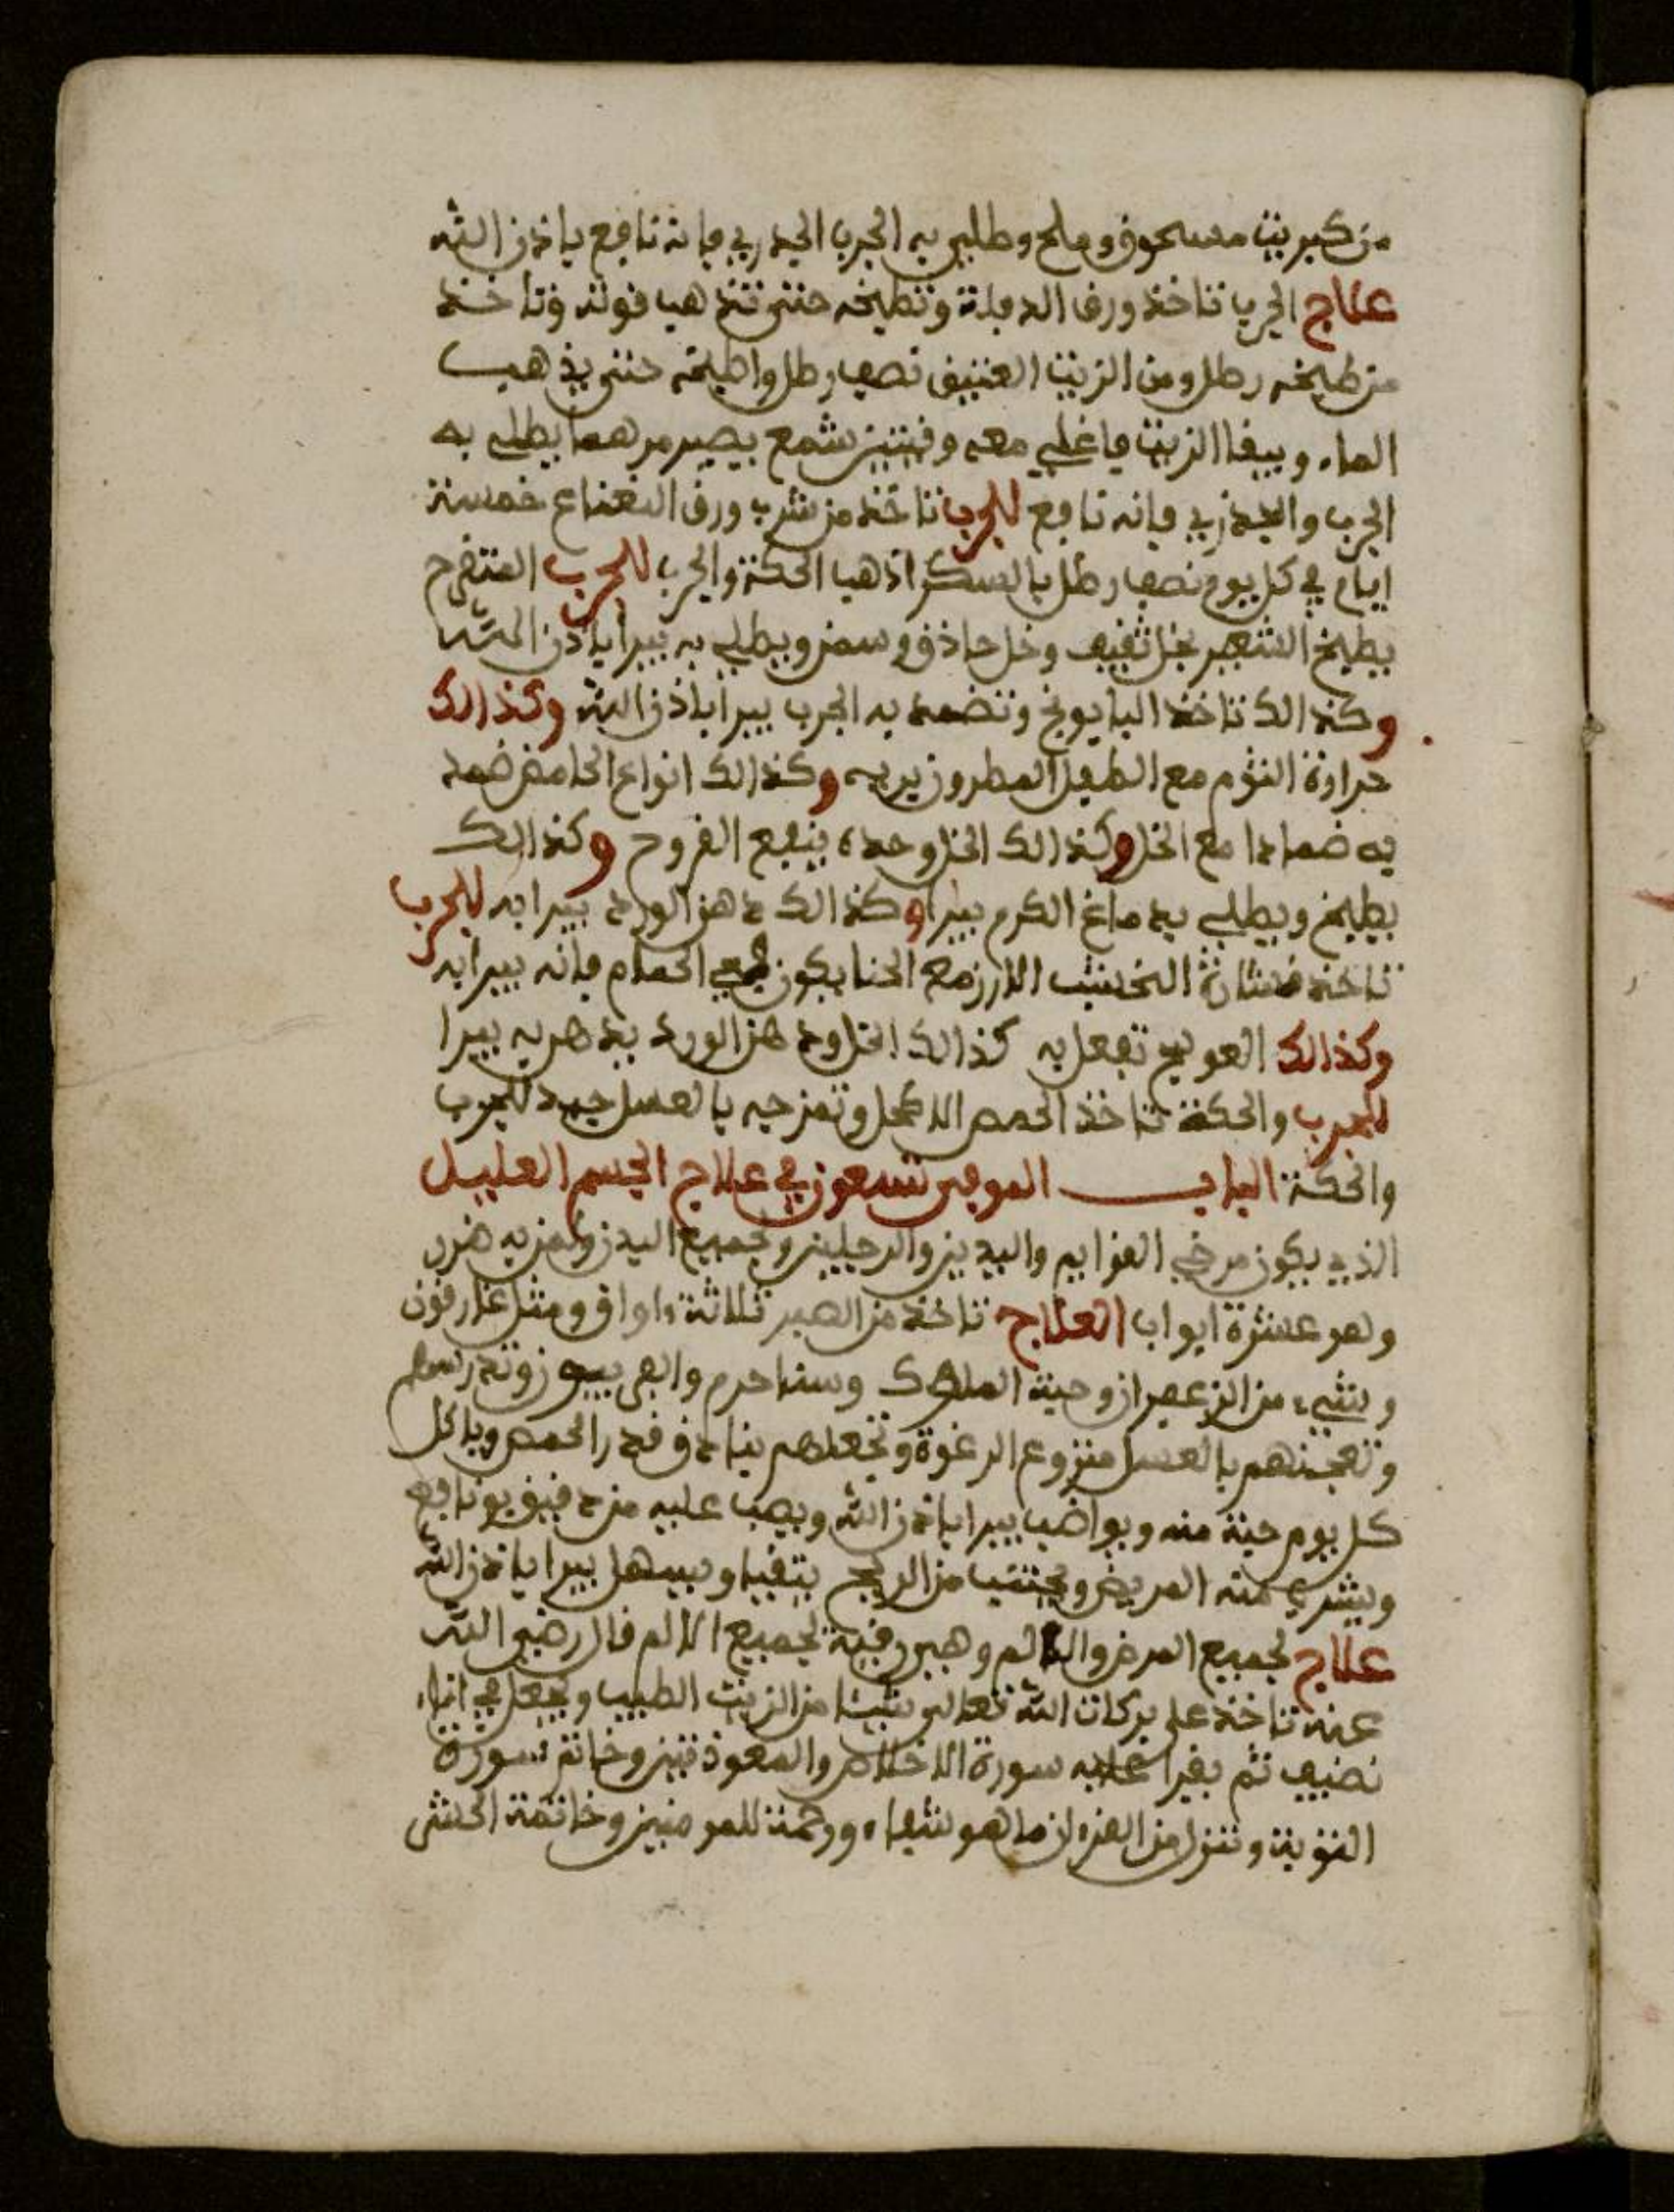 من كبريت مسحوق وملح وطلي به الجرب الجدري فانه نافع باذن الله
علاج الجرب تاخذ ورق الدفلة وتطبخه حتى تذهب قوته وتاخذ
من طبيخه رطل ومن الزيت العتيق نصف رطل واطبخه حتى يذهب
الماء ويبقا الزيت فاغلي معه وقيتين شمع يصير مرهما يطلى به
الجرب والجدري فانه نافع للجرب تاخذ من شرب ورق النعناع خمسة
ايام في كل يوم نصف رطل بالسكر اذهب الحكة والجرب للجرب المتقرح
يطبخ الشعير بخل ثقيف وخل حاذق وسمن ويطلى به يبرا باذن الله
وكذالك تاخذ البابونج وتضمد به الجرب يبرا باذن الله وكذالك
حراوة الثوم مع الطفل المطرون يريه وكذالك انواع الحامض ضمد
به ضمادا مع الخل وكذالك الخل وحده ينفع القروح وكذالك
يطبخ ويطلى بدماغ الكرم يبرا وكذالك دهن الورد يبرا به للجرب
تاخذ نشارة الخشب الارز مع الحنا يكون في الحمام فانه يبرا به
وكذالك العوسج تفعل به كذالك الخل ودهن الورد يدهن به يبرا
للجرب والحكة تاخذ الحمص الاكحل وتمزجه بالعسل جيد للجرب
والحكة الباب الموفي تسعون في علاج الجسم العليل
الذي يكون مرخي القوايم واليدين والرجلين وجميع البدن ولمن به ضرر
وهو عشرة ابواب العلاج تاخذ من الصبر ثلاثة اواق ومثل غارقون
وشيء من الزعفران وحبة الملوك وسنا حرم والفربيون وتدرسهم
وتعجنهم بالعسل منزوع الرغوة وتجعلهم بنادق قدر الحمص وياكل
كل يوم حبة منه ويواضب يبرا باذن الله ويصب عليه من دقيق بونافع
ويشرب منه المريض ويجتنب من الريح يتقيا ويسهل يبرا باذن الله
علاج لجميع المرض والالم وهي رقية لجميع الالم قال رضي الله
عنه تاخذ على بركات الله تعالى شيئا من الزيت الطيب وتجعل في اناء
نضيف ثم يقرا عليه سورة الاخلاص والمعوذتين وخاتم سورة
التوبة وننزل من القران ما هو شفاء ورحمة للمومنين وخاتمة الحشر